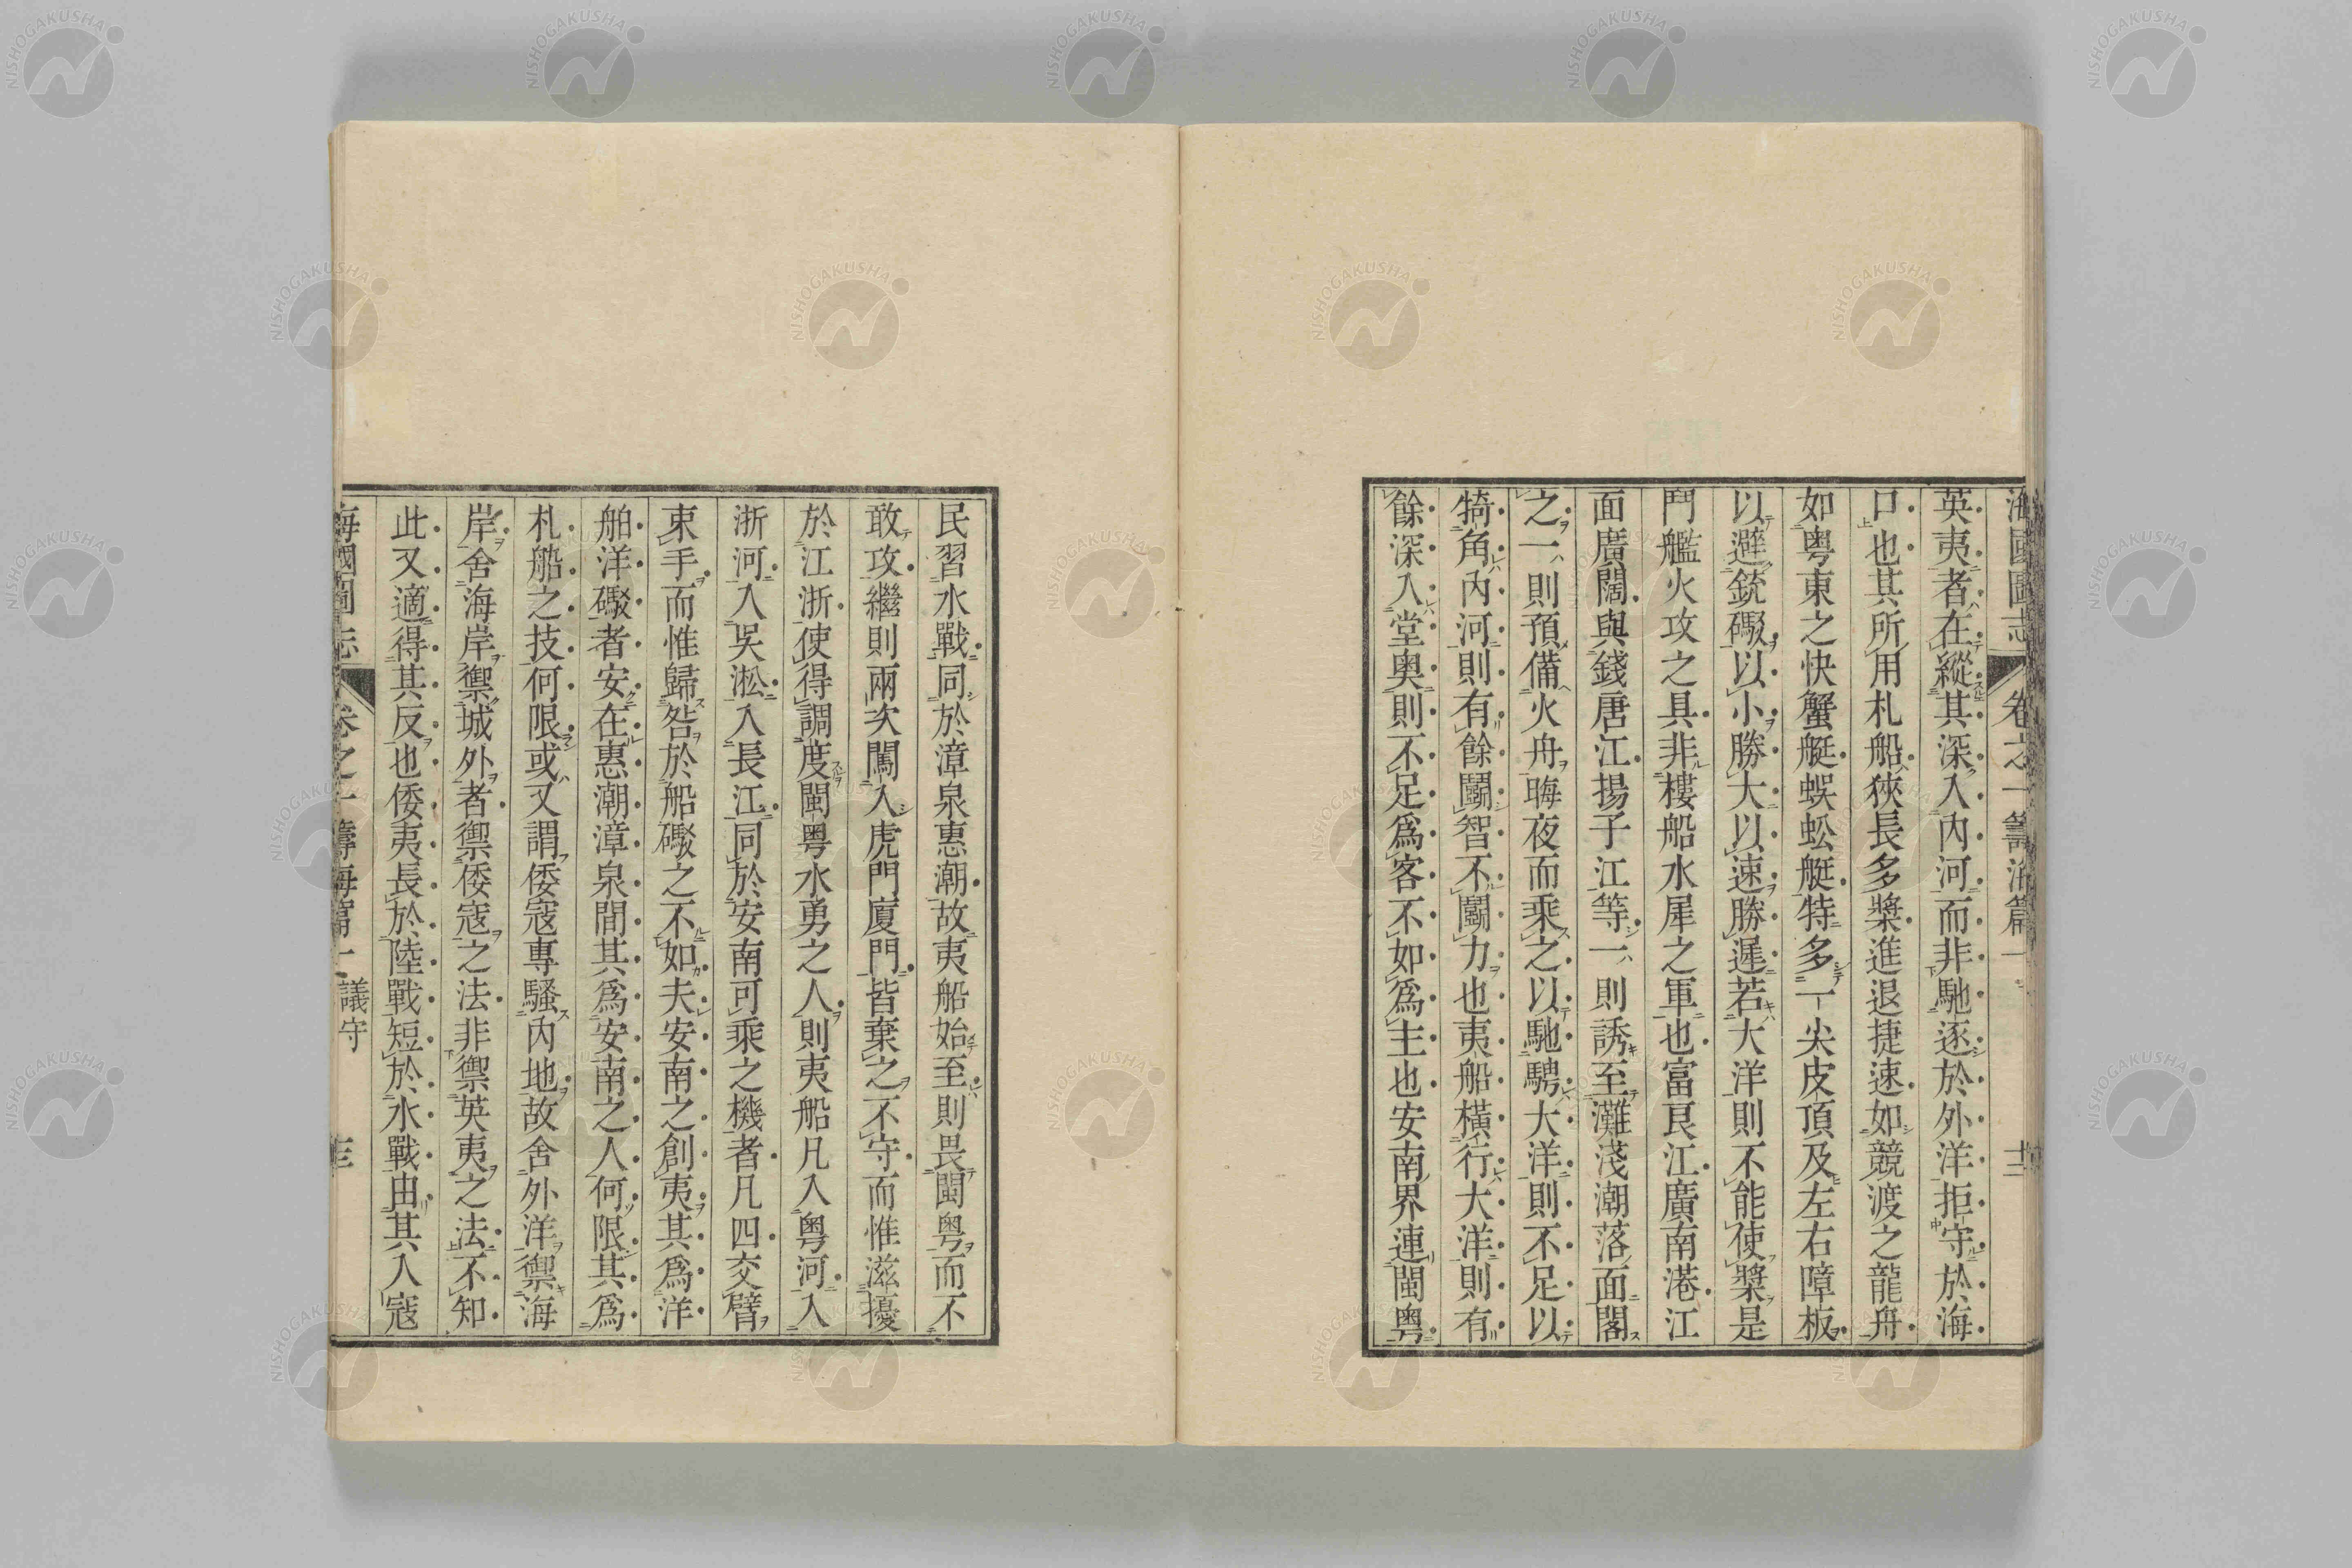 海國圖志 卷之一 籌海篇一 十二
英夷者在縱其深入內河而非馳逐於外洋拒守於海
口也其所用札船狹長多槳進退捷速如競渡之龍舟
如粤東之快蟹艇蜈蚣艇特多一尖皮頂及左右障板
以避銃礮以小勝大以速勝遲若大洋則不能使槳是
鬥艦火攻之具非樓船水犀之軍也富良江廣南港江
面廣闊與錢唐江揚子江等一則誘至灘淺潮落面閣
之一則預備火舟晦夜而乘之以馳騁大洋則不足以
犄角內河則有餘鬬智不鬬力也夷船橫行大洋則有
餘深入堂奥則不足爲客不如爲主也安南界連閩粤
民習水戰同於漳泉惠潮故夷船始至則畏閩粤而不
敢攻繼則兩次闖入虎門廈門皆棄之不守而惟滋擾
於江浙使得調度閩粤水勇之人則夷船凡入粤河入
浙河入吳淞入長江同於安南可乘之機者凡四交臂
束手而惟歸咎於船礮之不如夫安南之創夷其爲洋
舶洋礮者安在惠潮漳泉間其爲安南之人何限其爲
札船之技何限或又謂倭寇專騷內地故舍外洋禦海
岸舍海岸禦城外者禦倭寇之法非禦英夷之法不知
此又適得其反也倭夷長於陸戰短於水戰由其入寇
海國圖志 卷之一 籌海篇一 議守